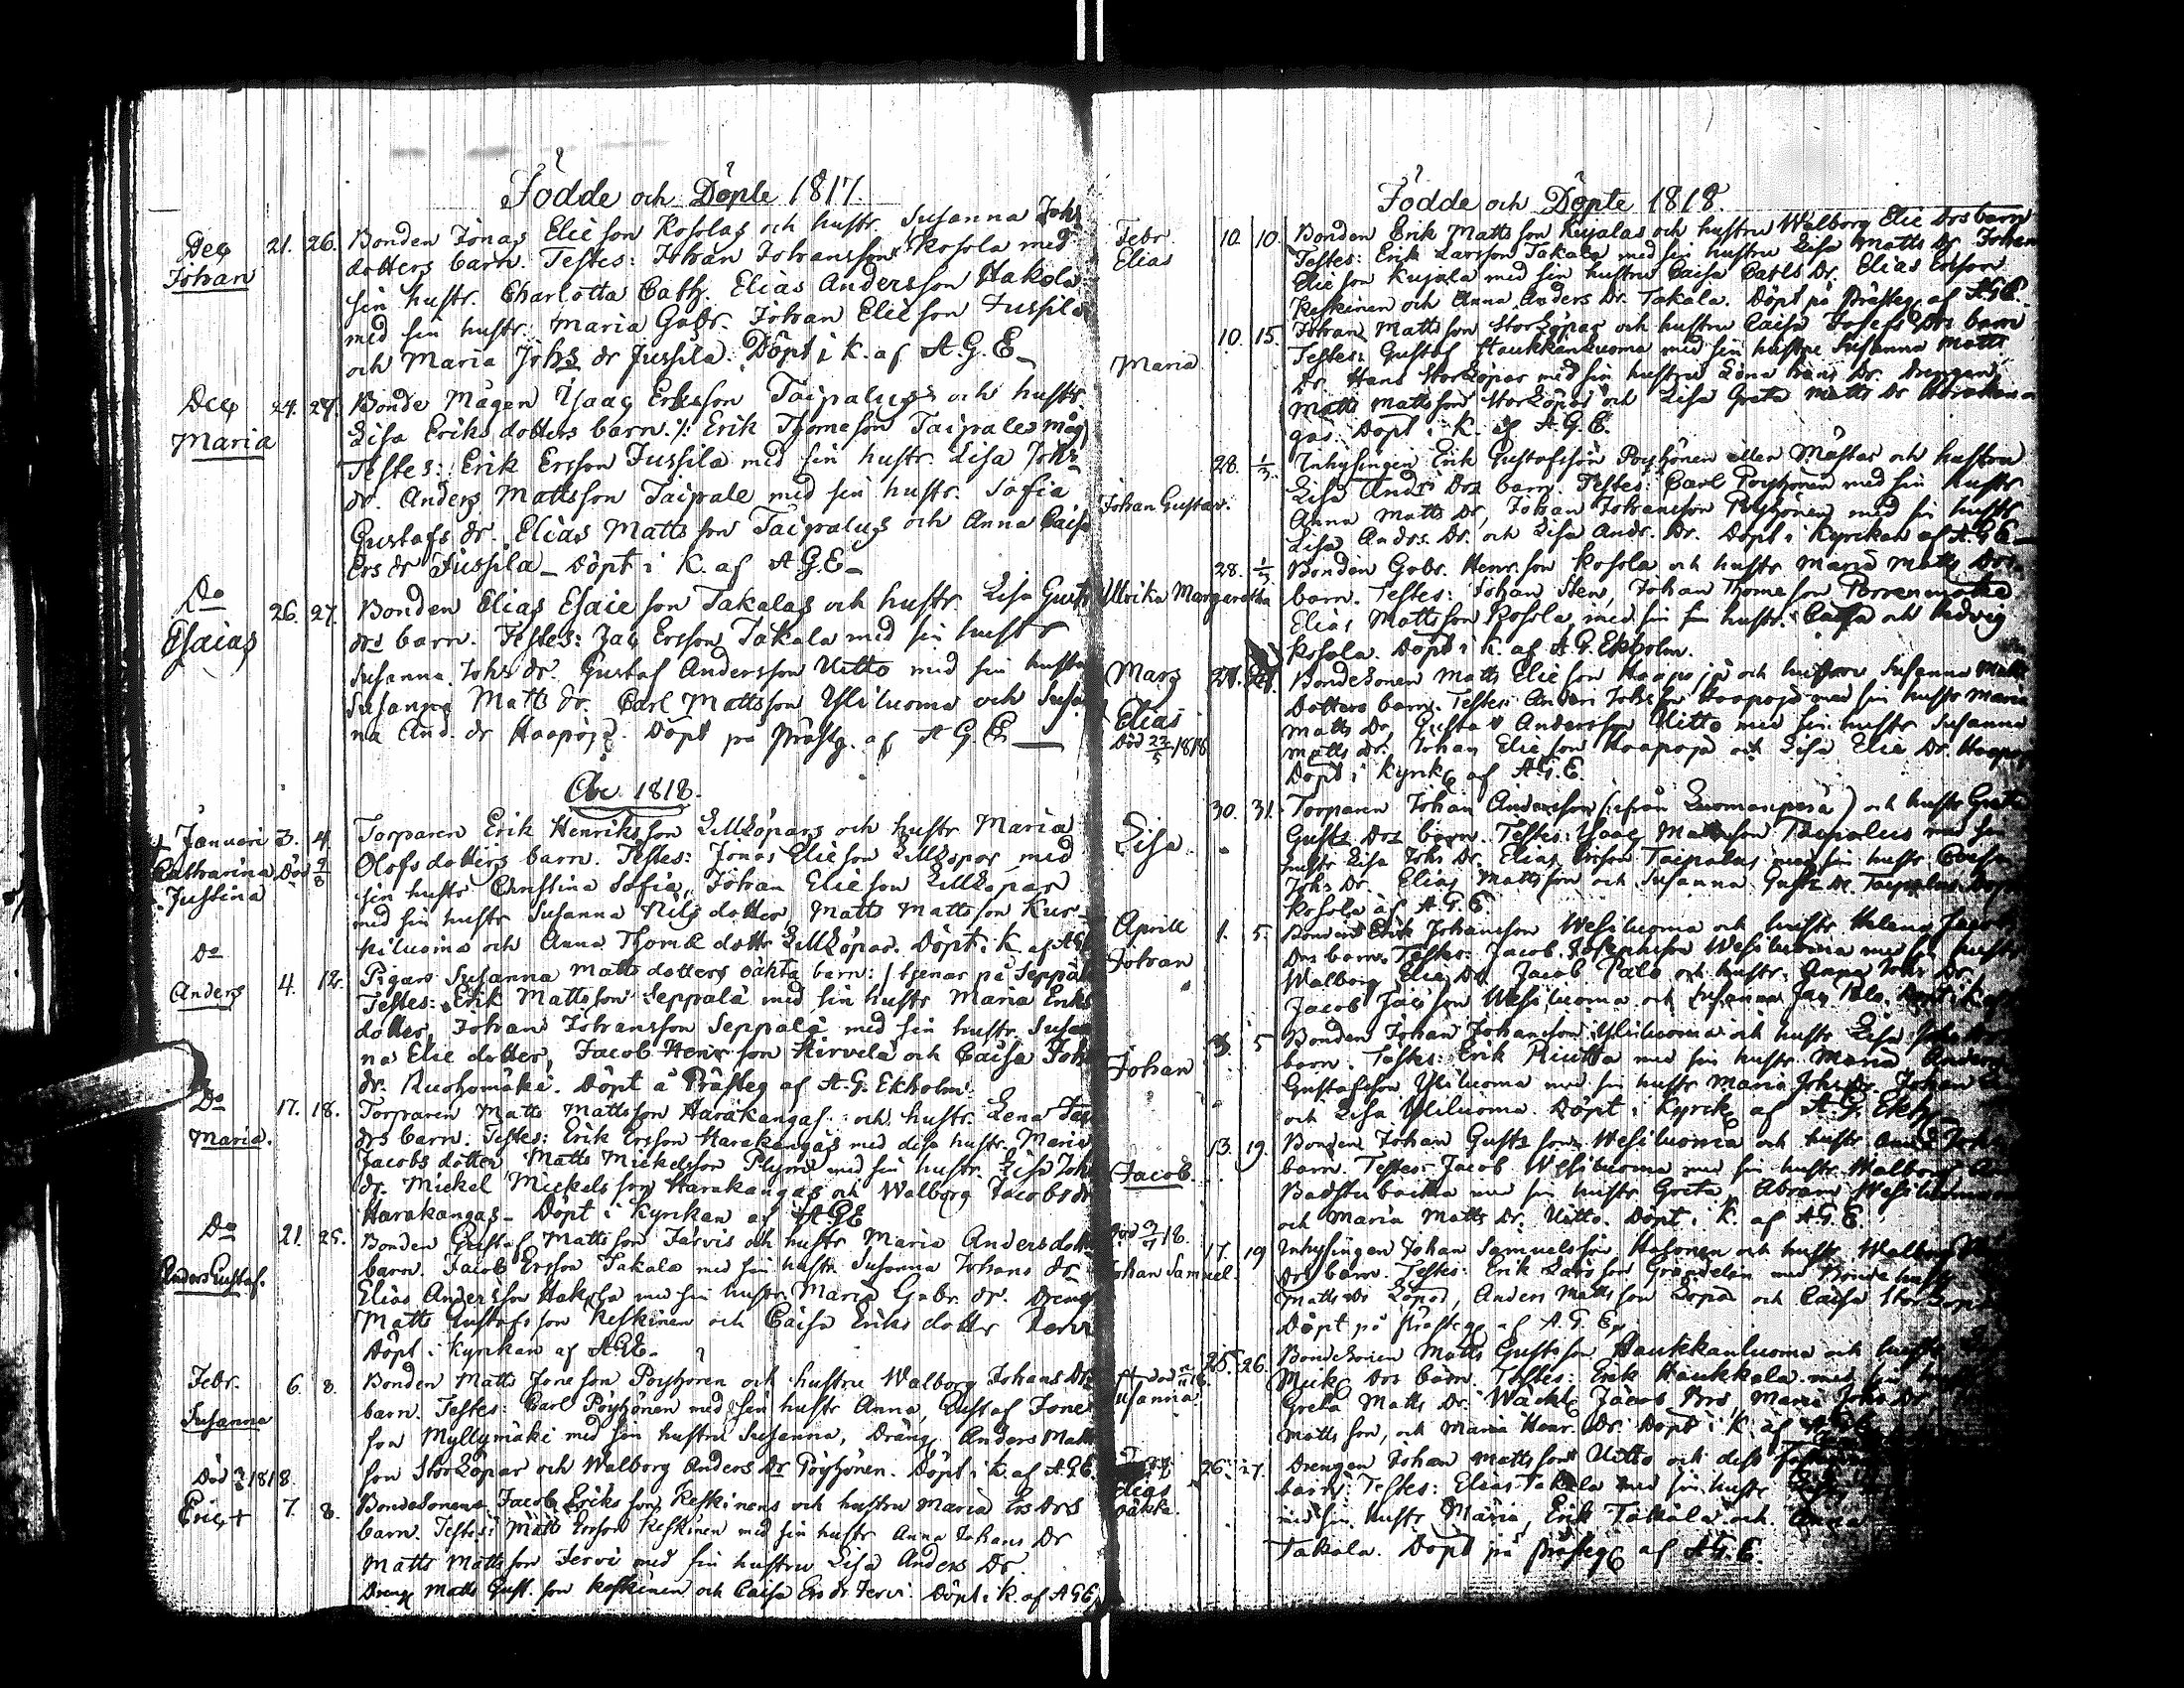 Födde och Döpte 1817.
Dec 21. 26. Bonden Jonas Elie son Kosolas och hustr. Susanna Johs
Johan dotters barn. Testes: Johan Johansson Kosola med
sin hustr. Charlotta Cath. Elias Andersson Hakola
med sin hustr. Maria Gabr. Johan Elie son Jussila
och Maria Johs dr Jussila. Döpt i K. af A.G.E
Dec 24. 27. Bonde Mågen Isaac Ersson Taipalus och hustr.
Maria Lisa Eriks dotters barn. Erik Thomeson Taipales måg
Testes: Erik Ersson Jussila med sin hustr Lisa Johs
dr. Anders Mattsson Taipale med sin hustr. Sofia
Gustafs dr. Elias Mattsson Taipalus och Anna Caisa
Ers dr Jussila - Döpt i K. af A.G.E -
Do 26. 27. Bonden Elias Esaie son Takalas och hustr. Lisa Gust
Esaias drs barn. Testes: Jac Ersson Takala med sin hustr
Susanna Johs dr. Gustaf Andersson Uitto med sin hustr
Susanna Matts dr. Carl Mattsson Yliluoma och Susan
na And. dr Haapoja. Döpt på Prästg. af A.G.E.
1818.
+ Januari 3. 4. Torparen Erik Henriksson Lillköpars och hustr Maria
Catharina Död 9/8 Olofs dotters barn. Testes: Jonas Elieson Lillköpar med
Justina sin hustr Christina Sofia, Johan Elieson Lillköpar
med sin hustr Susanna Nils dotter, Matts Mattsson Kur-
kiluoma och Anna Thomæ dottr Lillköpar. Döpt i K. af AGE
Do
Anders 4. 12. Pigans Susanna Matts dotters oäkta barn: / tjenar på Seppälä
Testes: Erik Mattsson Seppälä med sin hustr Maria Eriks
dotter, Johan Johansson Seppälä med sin hustr. Susan
na Elie dotter, Jacob Henr son Hirvelä och Caisa Joh
dr. Ruohomäki. Döpt å Prästeg af A.G. Ekholm.
Do 17. 18. Torparen Matts Mattsson Harakangas och hustr. Lena
Maria. drs barn. Testes: Erik Ersson Harakangas med dess hustr. Maria
Jacobs dotter Matts Mickelsson Plym med sin hustr. Lisa Joh
dr. Mickel Mickels son Harakangas och Walborg Jacobs dr
Harakangas - Döpt i Kyrkan af A.G.E
Do 21. 25. Bonden Gustaf Mattson Järvis och hustr Maria Anders dott
Anders Gustaf. barn. Jacob Ersson Takala med sin hustr. Susanna Johans dr
Elias Andersson Hakola med sin hustr. Maria Gabr. dr. Dreng
Matts Gustafsson Keskinen och Caisa Eriks dotter
Döpt i Kyrkan af AGE.
Febr. 6. 8. Bonden Matts Jone son Pöyhönen och hustru Walborg Johans Drs
Susanna barn. Testes: Carl Pöyhönen med sin hustr Anna, Gustaf Jone
son Myllymäki med sin hustru Susanna, Dräng Anders Matts
Död 1818. son Storköpar och Walborg Anders Dr Pöyhönen. Döpt i K. af A.G.E.
Eric + 7. 8. Bondesonens Jacob Eriks son Keskinens och hustru Maria Ers Drs
barn. Testes: Matts Ersson Keskinen med sin hustr Anna Johans Dr
Matts Mattsson Jervi med sin hustru Lisa Anders Dr.
Dreng Matts Gust. son Keskinen och Caisa Ers dr Jervi. Döpt i K. af A G E
Födde och Döpte 1818.
Febr. 10. 10. Bonden Erik Mattsson Kujalas och hustru Walborg Elie Drs barn
Elias Testes: Erik Larsson Takala med sin hustru Lisa Matts Dr. Johan
Elie son Kujala med sin hustru Caisa Carls Dr. Elias Ersson
Keskinen och Anna Anders Dr. Takala. Döpt på Prästeg. af A.G.E.
10. 15. Johan Mattsson Storköpar och hustru Caisa Josefs Drs barn
Maria Testes: Gustaf Haukkanluoma med sin hustru Susanna Matts
Dr. Hans Storköpar med sin hustru Dr. Drengen
Matts Mattsson Storköpar och Lisa Greta Matts Dr Harakan
gas. Döpt i K. af A.G.E.
28. 1/3 Inhysingen Erik Gustafsson Pöyhönen eller Mästar och hustru
Johan Gustav. Lisa Andrs Drs barn. Testes: Carl Pöyhönen med sin hustr
Anna Matts Dr, Johan Johansson Pöyhönen med sin hustr
Lisa Andrs. Dr. och Lisa Andr. Dr. Döpt i Kyrkan af A.G.E.
28. 1/3 Bonden Gabr. Henr. son Kosola och hustr Maria Matts Drs
Ulrika Margaretha barn. Testes: Johan Sten, Johan Thomeson
Elias Mattsson Kosola med sin hustr. Caisa och Hedvig
Kosola. Döpt i K. af A.G. Ekholm.
Mars Bondesonen Matts Elieson Haapoja och hustrun Susanna Matts
Elias Dotters barn. Testes: Anders Johs son Haapoja med sin hustr Maria
Död 22/5 1818 Matts Dr, Gustav Andersson Uitto med sin hustr Susanna
Matts dr. Johan Elieson Haapoja och Lisa Elie Dr. Haapoja
Döpt i Kyrk af A.G.E.
30. 31. Torparen Johan Andersson (ifrån Luomanperä) och hustr Greta
Lisa Gusts Drs barn. Testes: Isaac Mattsson Taipalus med sin
hustr Lisa Johs Dr. Elias Ersson Taipalus med sin hustr. Caisa
Johs Dr. Elias Mattsson och Susanna Gusts Dr. Taipalus. Döpt
Kosola af A.G.E.
Aprill 1. 5. Bonden Erik Johansson Wesiluoma och hustr Helena Jacobs
Johan Drs barn. Testes: Jacob Josephsson Wesiluoma med sin hustr
Walborg Elie Dr. Jacob Palo och hustr. Anna Johs Dr.
Jacob Jacs son Wesiluoma och Susanna Jac Palo. Döpt i K. af
5 Bonden Johan Johansson Yliluoma och hustr Lisa
Johan barn. Testes: Erik med sin hustr Maria Anders
Gustafsson Yliluoma med sin hustr Maria Johs Dr. Johan
och Lisa Yliluoma. Döpt i Kyrk af A.G. Ekh
13. 19. Bonden Johan Gusts son Wesiluoma och hustr Anna
Jacob. barn. Testes: Jacob Wesiluoma med sin hustr Walborg
Badstubacka med sin hustr Greta Abram Wesiluoma
och Maria Matts Dr. Uitto. Döpt i K. af A.G.E.
17. 19 Inhysingen Johan Samuelsson Hosonen och hustr Walborg
Johan Samuel. Drs barn. Testes: Erik Lars son Gröndelin med
Matts Dr Löpar, Anders Matts son och Caisa
Döpt på Prästeg af A.G.E.
25. 26. Bondesonen Matts Gustsson Haukkanluoma och hustr
Susanna Mick Drs barn. Testes: Erik Haukkala med sin
Greta Matts Dr. Jacob Maria Johs Dr
Matts son, och Maria Henr. Dr. Döpt i K. af
26. 27. Drengen Johan Mattsson Uitto och dess
Elias barn. Testes: Elias Takala med sin hustr
oäkta. med sin hustr Maria, Erik Takala och Anna
Takala. Döpt på Prästeg af A.G.E.